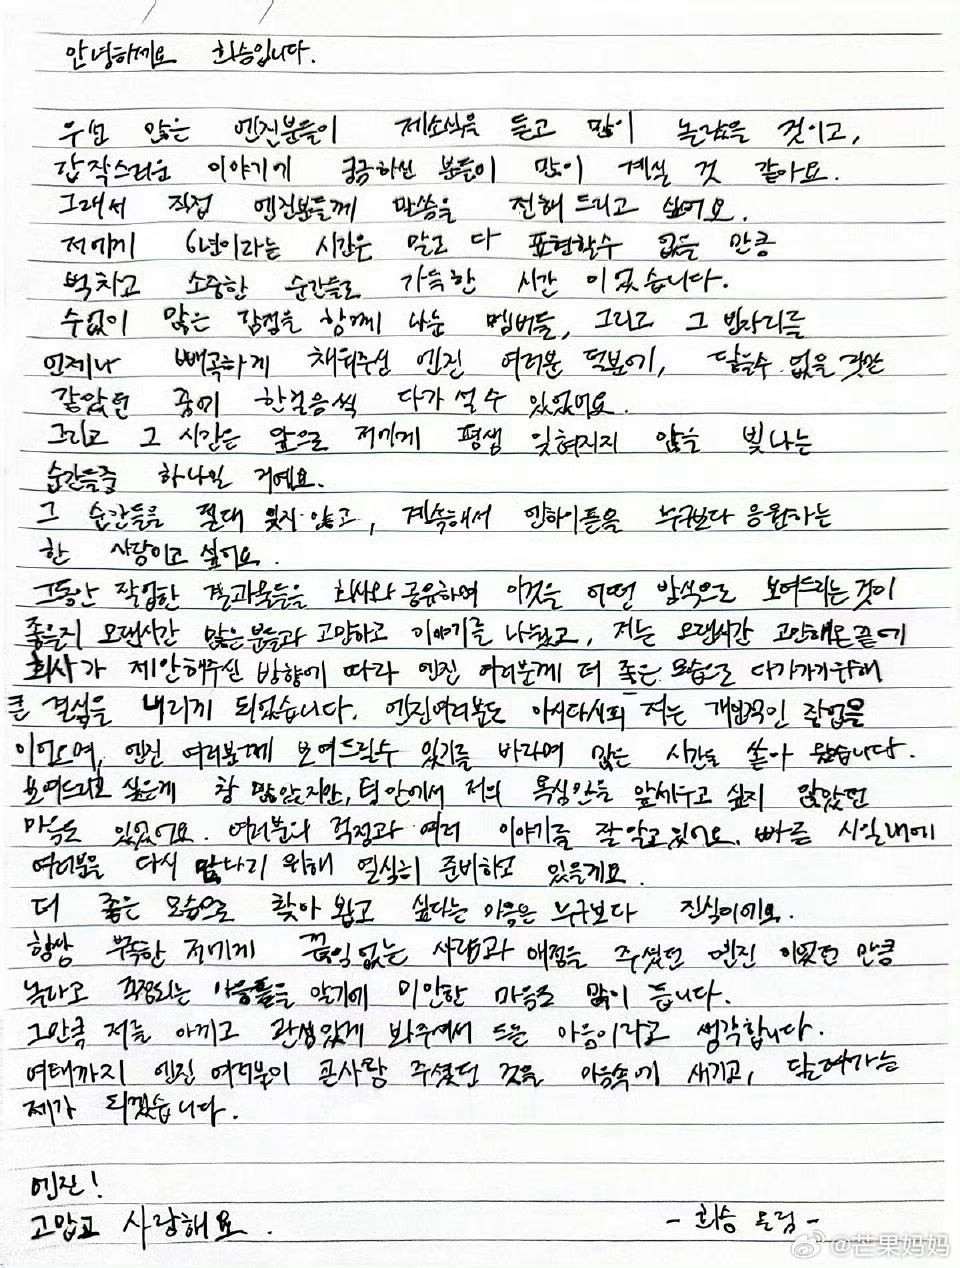 안녕하세요 희승입니다.
우선 많은 엔진분들이 제소식을 듣고 많이 놀랐을 것이고,
갑작스러운 이야기에 궁금하신 분들이 많이 계실 것 같아요.
그래서 직접 엔진분들께 말씀을 전해 드리고 싶어요.
저에게 6년이라는 시간은 말로 다 표현할수 없을 만큼
벅차고 소중한 순간들로 가득한 시간 이었습니다.
수없이 많은 감정을 함께 나눈 멤버들, 그리고 그 빈자리를
언제나 빼곡하게 채워주신 엔진 여러분 덕분에, 닿을수 없을 것만
같았던 꿈에 한걸음씩 다가 설 수 있었어요.
그리고 그 시간은 앞으로 저에게 평생 잊혀지지 않을 빛나는
순간들중 하나일 거예요.
그 순간들을 절대 잊지 않고, 계속해서 엔하이픈을 누구보다 응원하는
한 사람이고 싶어요.
그동안 작업한 결과물들을 회사와 공유하며 이것을 어떤 방식으로 보여드리는 것이
좋을지 오랜시간 많은 분들과 고민하고 이야기를 나눴고, 저는 오랜시간 고민해온 끝에
회사가 제안해주신 방향에 따라 엔진 여러분께 더 좋은 모습으로 다가가기위해
큰 결심을 내리게 되었습니다. 엔진여러분도 아시다시피 저는 개인적인 작업을
이어오며, 엔진 여러분께 보여드릴수 있기를 바라며 많은 시간을 쏟아 왔습니다.
보여드리고 싶은게 참 많았지만, 팀 안에서 저의 욕심만을 앞세우고 싶지 않았던
마음도 있었어요. 여러분의 걱정과 여러 이야기를 잘 알고 있어요. 빠른 시일 내에
여러분을 다시 만나기 위해 열심히 준비하고 있을게요.
더 좋은 모습으로 찾아 뵙고 싶다는 마음은 누구보다 진심이에요.
항상 부족한 저에게 끊임없는 사랑과 애정을 주셨던 엔진 이었던 만큼
놀라고 걱정되는 마음들을 알기에 미안한 마음도 많이 듭니다.
그만큼 저를 아끼고 관심있게 봐주셔서 드는 마음이라고 생각합니다.
여태까지 엔진 여러분이 큰사랑 주셨던 것을 마음속에 새기고, 달려가는
제가 되겠습니다.
엔진!
고맙고 사랑해요.
- 희승 드림 -
@芒果妈妈